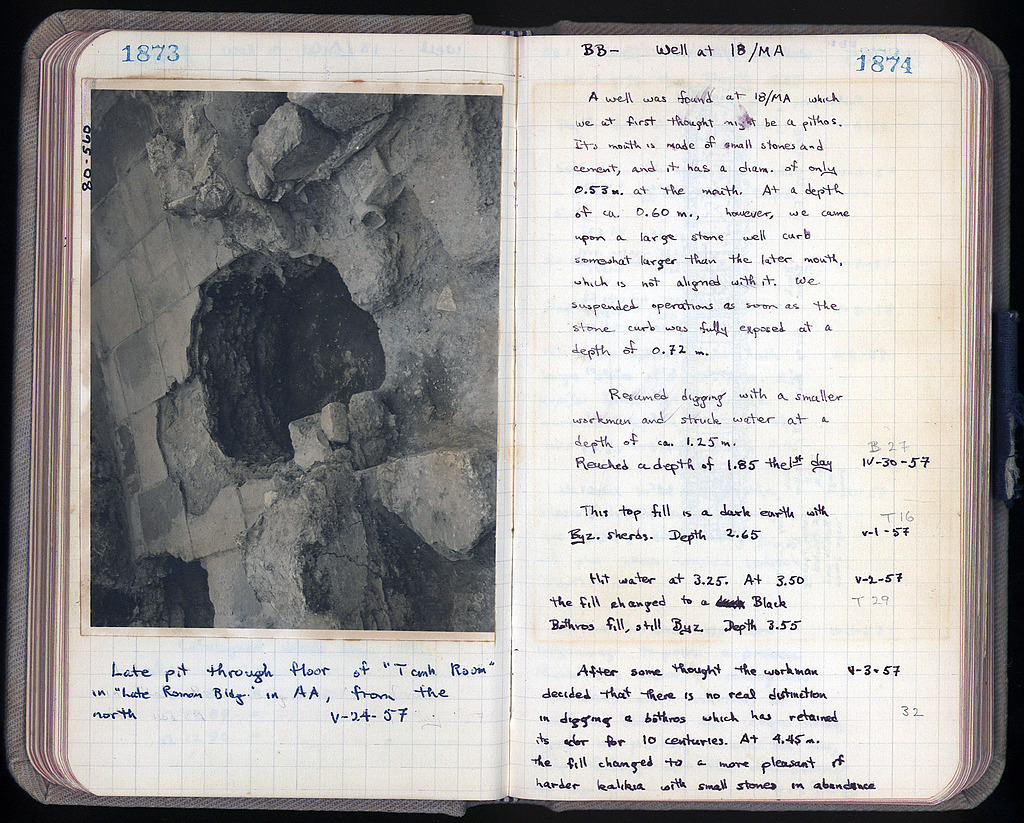 1873
80-560
Late pit through floor of "Tank Room"
in "Late Roman Bldg." in AA, from the
north V-24-57
BB- Well at 18/MA
1874
A well was found at 18/MA which
we at first thought might be a pithos.
Its mouth is made of small stones and
cement, and it has a diam. of only
0.53 m. at the mouth. At a depth
of ca. 0.60 m., however, we came
upon a large stone well curb
somewhat larger than the later mouth,
which is not aligned with it. We
suspended operations as soon as the
stone curb was fully exposed at a
depth of 0.72 m.
Resumed digging with a smaller
workman and struck water at a
depth of ca. 1.25 m.
B 27
Reached a depth of 1.85 the 1st day IV-30-57
This top fill is a dark earth with
T 16
Byz. sherds. Depth 2.65 V-1-57
Hit water at 3.25. At 3.50 V-2-57
the fill changed to a Black T 29
Bothros fill, still Byz. Depth 3.55
After some thought the workman V-3-57
decided that there is no real distinction
in digging a bothros which has retained 32
its odor for 10 centuries. At 4.45 m.
the fill changed to a more pleasant if
harder kalikia with small stones in abundance